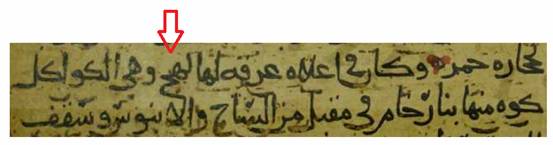 حجاره حمره وكان في اعلاه غرفه لها لهج وهي الكوا لكل
كوه منها بنا رخام في مقبل من الساج والابنوس وسقف